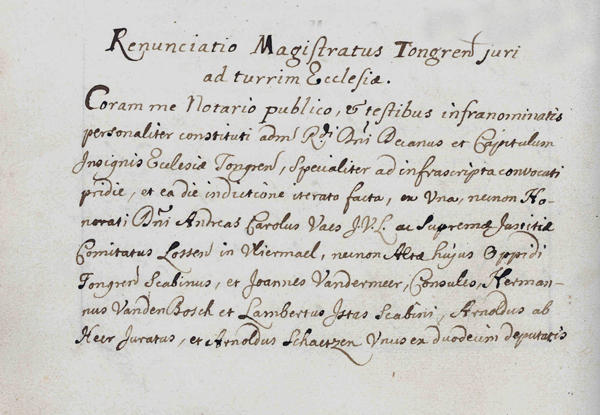 Renunciatio Magistratus Tongren̄ juri
ad turrim Ecclesiæ.
Coram me Notario publico, & testibus infranominatis
personaliter constituti adm̄ R̄di Dn̄i Decanus et Capitulum
Insignis Ecclesiæ Tongren̄, specialiter ad infrascripta convocati
pridie, et ea die indictione iterato facta, ex Una, necnon Ho-
norati Dn̄i Andreas Carolus Vaes J.V.L. ac Supremæ Justitiæ
Comitatus Lossen̄ in Vliermael, necnon Altæ hujus Oppidi
Tongren̄ Scabinus, et Joannes Vandermeer, Consules, Herman-
nus VandenBosch et Lambertus Istas Scabini, Arnoldus ab
Heer Juratus, et Arnoldus Schaetzen Unus ex duodecim deputatis